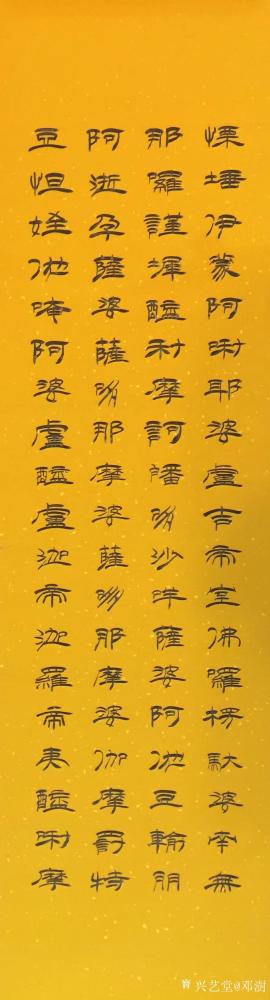 慄埵伊蒙阿唎耶婆盧吉帝室佛羅楞馱婆南無
那羅謹墀醯利摩訶皤哆沙咩薩婆阿他豆輸朋
阿逝孕薩婆薩哆那摩婆薩哆那摩婆伽摩罰特
豆怛姪他唵阿婆盧醯盧迦帝迦羅帝夷醯唎摩
兴艺堂@邓澍